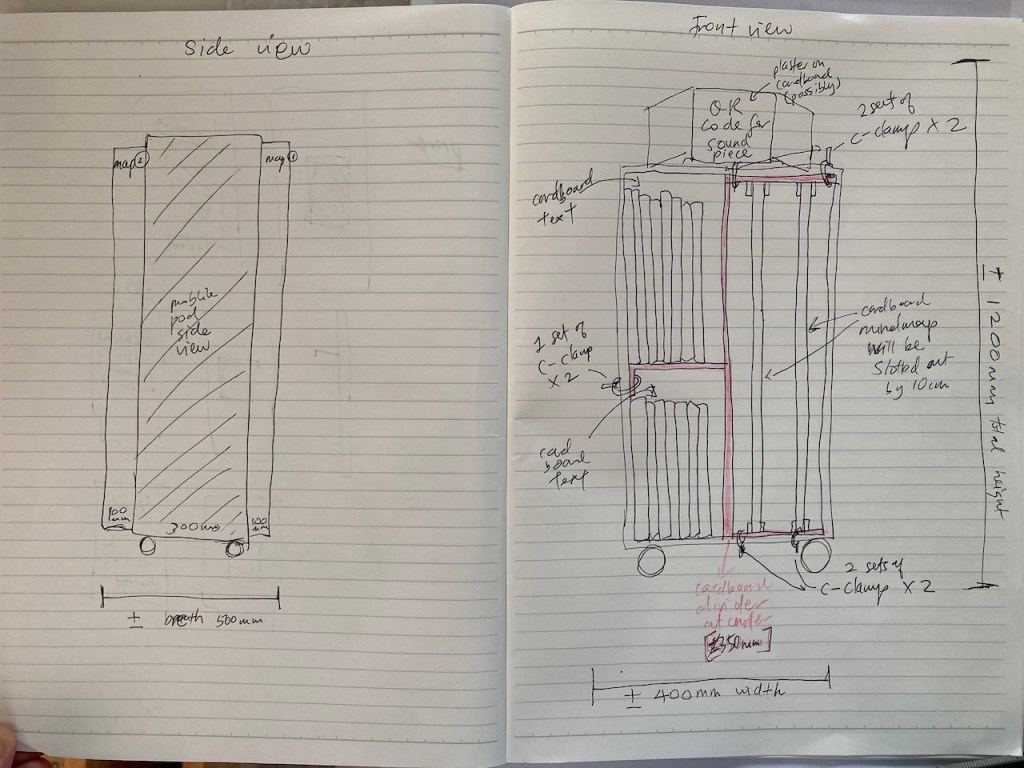 Side view
map 2
map 1
mobile
pod
side
view
100
mm
300mm
100
mm
± breath 500mm
Front view
plaster on
cardboard
(possibly)
QR
code for
sound
piece
2 set of
c-clamp x 2
cardboard
text
1 set of
c-clamp
x 2
card
board
text
cardboard
mindmap
will be
slotted out
by 10cm
± 1200mm total height
2 sets of
c-clamp x 2
cardboard
divider
at center
±350mm
± 400mm width